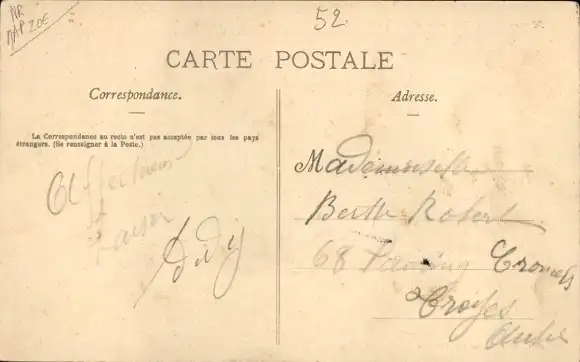 52.
CARTE POSTALE
Correspondance.
La Correspondance au recto n'est pas acceptée par tous les pays
étrangers. (Se renseigner à la Poste.)
Didy
Adresse.
Mademoiselle
Berthe Robert
68 Croncels
Troyes
Aube